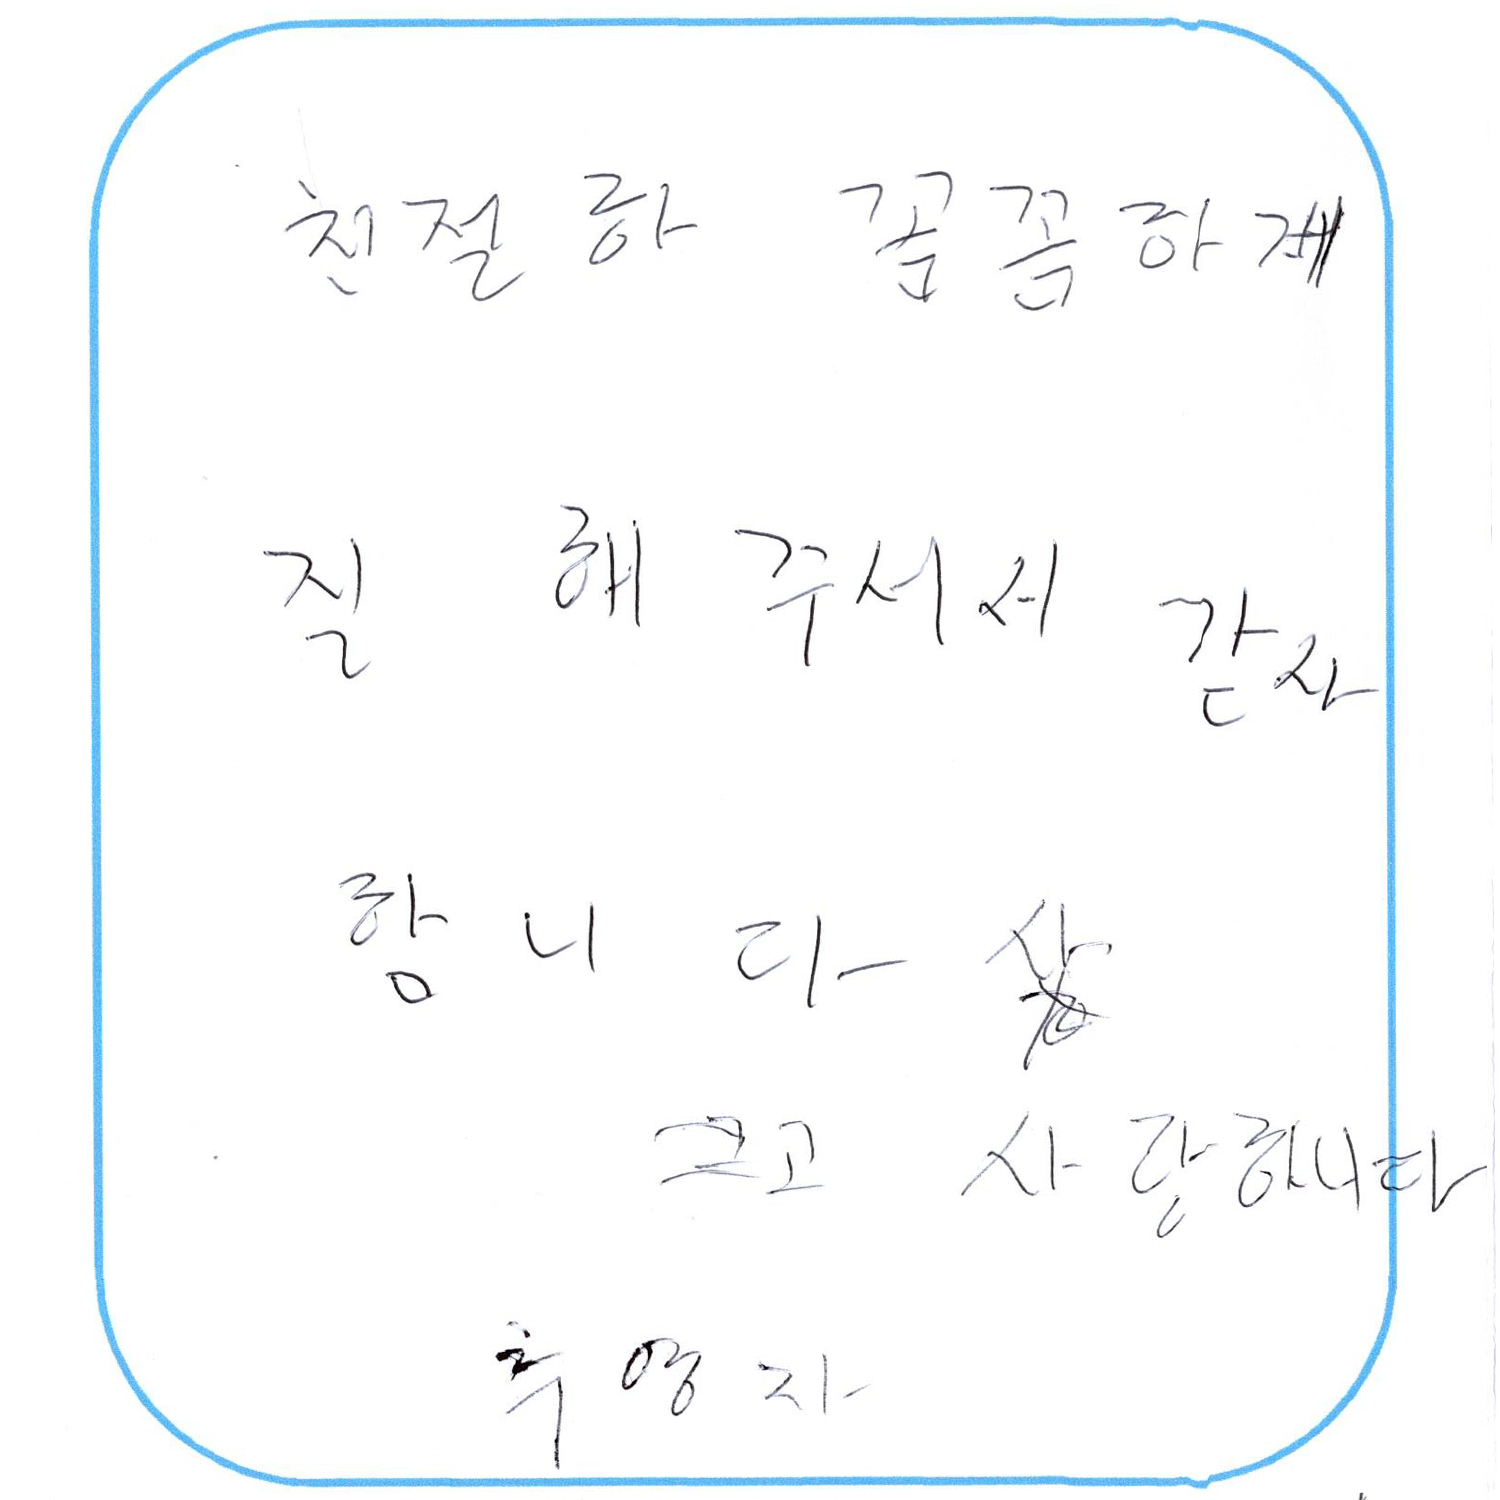 친절하 꼼꼼하게
질 해 주서서 감사
함니다
그고 사랑하니다
추영자